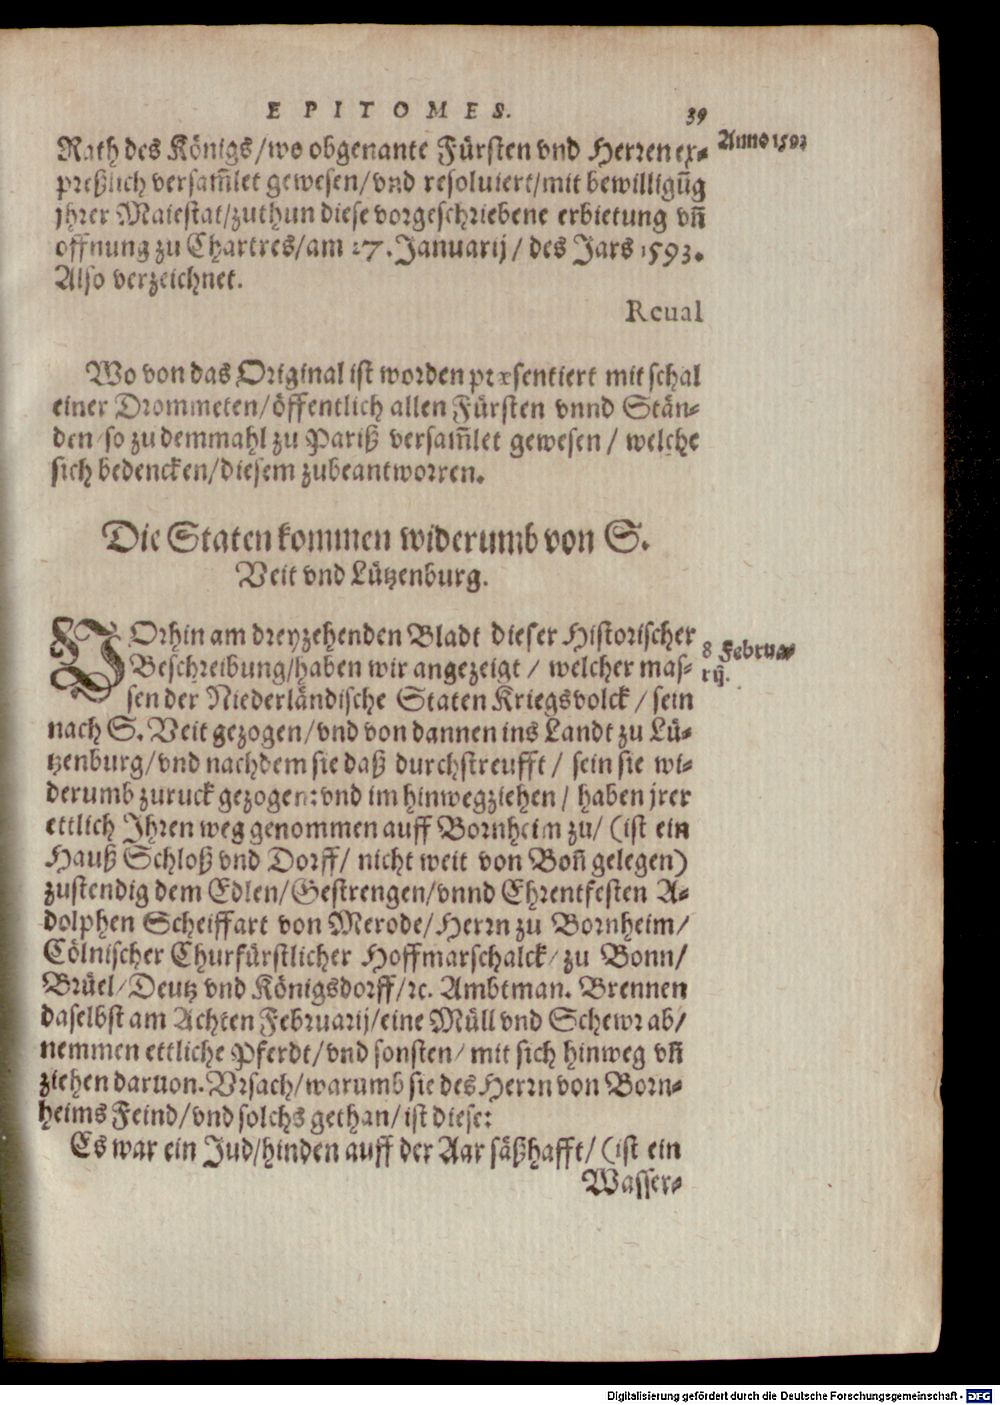 EPITOMES. 39
Anno 1593
Rath des Königs/wo obgenante Fürsten vnd Herren ex-
preßlich versam̃let gewesen/vnd resoluiert/mit bewilligũg
jhrer Maiestat/zuthun diese vorgeschriebene erbietung vñ
offnung zu Chartres/am 27. Januarij/ des Jars 1593.
Also verzeichnet.
Reual
Wo von das Original ist worden præsentiert mit schal
einer Drommeten/öffentlich allen Fürsten vnnd Stän-
den/so zu demmahl zu Pariß versam̃let gewesen/ welche
sich bedencken/diesem zubeantworren.
Die Staten kommen widerumb von S.
Veit vnd Lützenburg.
VOrhin am dreyzehenden Bladt dieser Historischer
8 Februa-
rij.
Beschreibung/haben wir angezeigt/ welcher mas-
sen der Niederländische Staten Kriegsvolck/ sein
nach S. Veit gezogen/vnd von dannen ins Landt zu Lü-
tzenburg/vnd nachdem sie daß durchstreufft/ sein sie wi-
derumb zuruck gezogen: vnd im hinwegziehen/ haben jrer
ettlich Ihren weg genommen auff Bornheim zu/ (ist ein
Hauß Schloß vnd Dorff/ nicht weit von Boñ gelegen)
zustendig dem Edlen/Gestrengen/vnnd Ehrentfesten A-
dolphen Scheiffart von Merode/Herrn zu Bornheim/
Cölnischer Churfürstlicher Hoffmarschalck/zu Bonn/
Brüel/Deutz vnd Königsdorff/ꝛc. Ambtman. Brennen
daselbst am Achten Februarij/eine Müll vnd Schewr ab/
nemmen ettliche Pferdt/vnd sonsten/mit sich hinweg vñ
ziehen daruon. Vrsach/warumb sie des Herrn von Born-
heims Feind/vnd solchs gethan/ist diese:
Es war ein Jud/hinden auff der Aar säßhafft/(ist ein
Wasser-
Digitalisierung gefördert durch die Deutsche Forschungsgemeinschaft - DFG